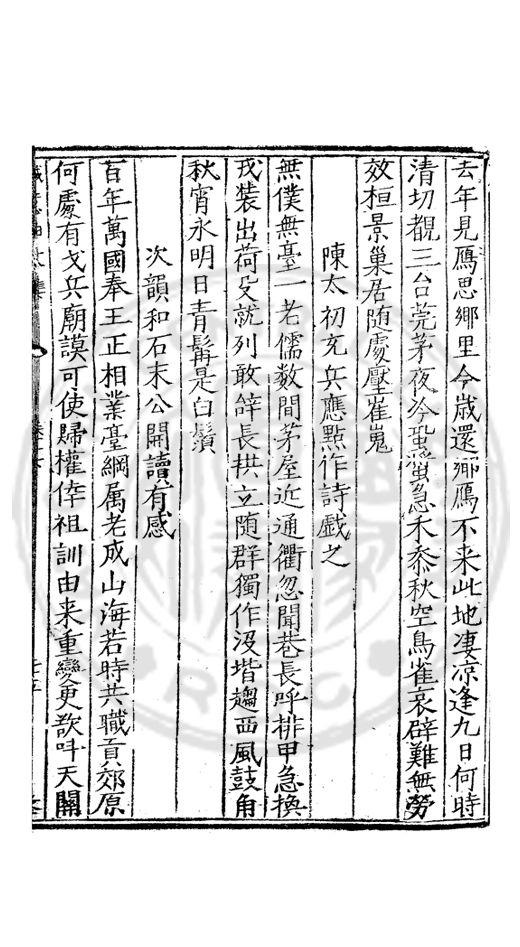 去年見鴈思鄉里今歲還鄉鴈不来此地凄凉逢九日何時
清切覩三台莞茅夜冷蛩螿急禾黍秋空鳥雀哀辟難無勞
效桓景巢居随處壓崔嵬
陳太初充兵應點作詩戯之
無僕無臺一老儒数間茅屋近通衢忽聞巷長呼排甲急換
戎装出荷殳就列敢辝長拱立随群獨作没堦趨西風鼓角
秋宵永明日青髯是白鬚
次韻和石末公開讀有感
百年萬國奉王正相業臺綱属老成山海若時共職貢郊原
何處有戈兵廟謨可使歸權倖祖訓由来重變更欲呌天閽